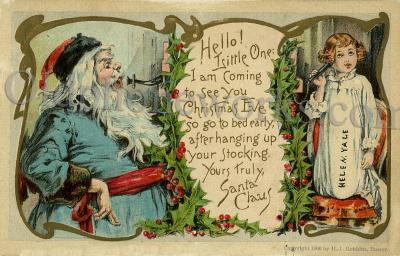 Hello!
Little One:
I am Coming
to see You
Christmas Eve
so go to bed early,
after hanging up
your Stocking.
Yours Truly,
Santa
Claus
HELEN YALE